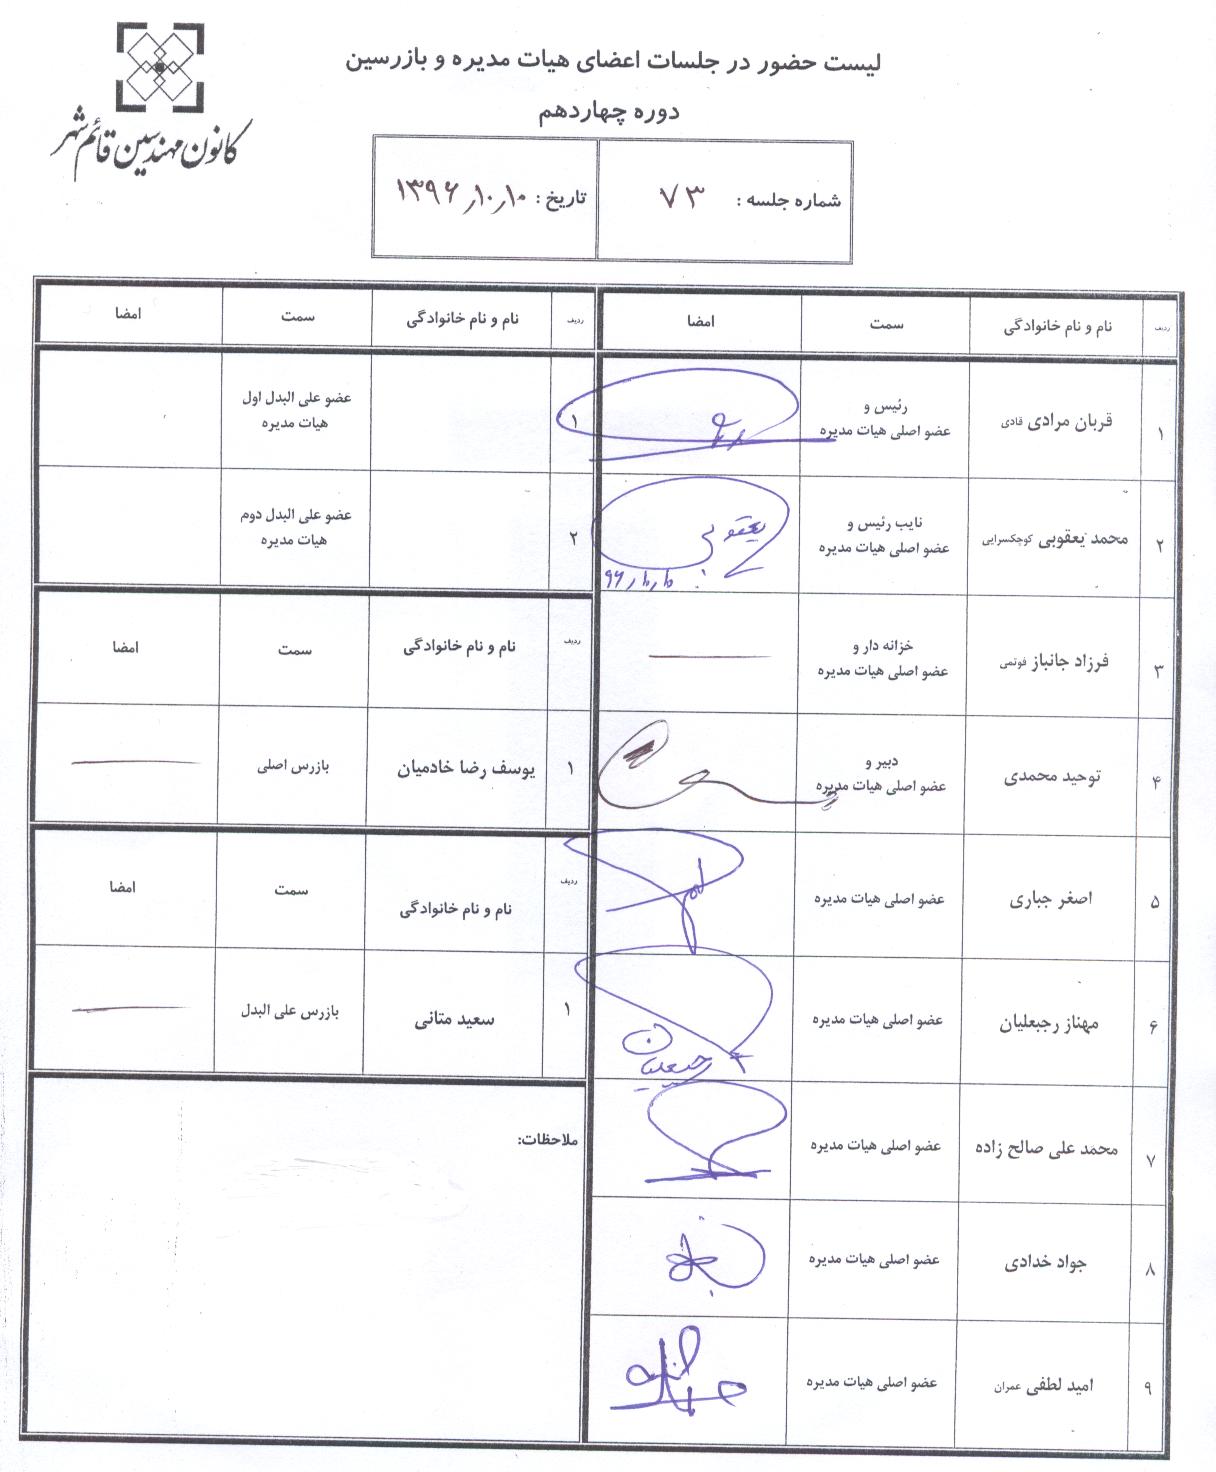 کانون مهندسین قائم شهر
لیست حضور در جلسات اعضای هیات مدیره و بازرسین
دوره چهاردهم
شماره جلسه : ۷۳
تاریخ : ۱۳۹۶/۱۰/۱۰
ردیف نام و نام خانوادگی سمت امضا
۱ قربان مرادی قادی رئیس و
عضو اصلی هیات مدیره
۲ محمد یعقوبی کوچکسرایی نایب رئیس و
عضو اصلی هیات مدیره
یعقوبی
۹۶/۱۰/۱۰
۳ فرزاد جانباز فوتمی خزانه دار و
عضو اصلی هیات مدیره
۴ توحید محمدی دبیر و
عضو اصلی هیات مدیره
۵ اصغر جباری عضو اصلی هیات مدیره
۶ مهناز رجبعلیان عضو اصلی هیات مدیره
رجبعلیان
۷ محمد علی صالح زاده عضو اصلی هیات مدیره
۸ جواد خدادی عضو اصلی هیات مدیره
۹ امید لطفی عمران عضو اصلی هیات مدیره
ردیف نام و نام خانوادگی سمت امضا
۱ عضو علی البدل اول
هیات مدیره
۲ عضو علی البدل دوم
هیات مدیره
ردیف نام و نام خانوادگی سمت امضا
۱ یوسف رضا خادمیان بازرس اصلی
ردیف نام و نام خانوادگی سمت امضا
۱ سعید متانی بازرس علی البدل
ملاحظات: